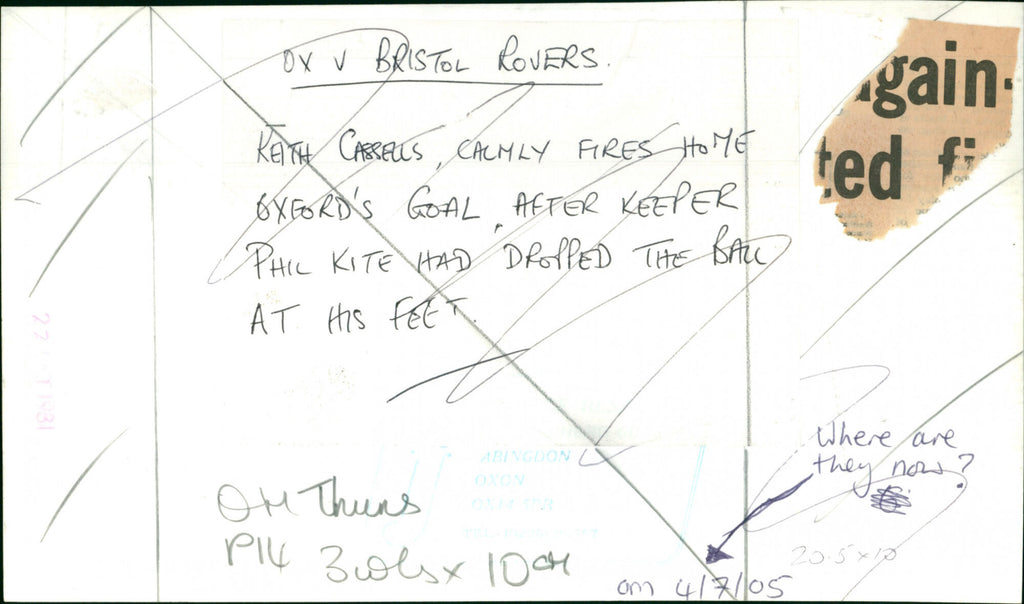 OX V BRISTOL ROVERS.
KEITH CASSELLS, CALMLY FIRES HOME
OXFORD'S GOAL, AFTER KEEPER
PHIL KITE HAD DROPPED THE BALL
AT HIS FEET.
again-
ted fi
ABINGDON
OXON
Where are
they now?
OM Thurs
P14 3 cols x 10cm
20.5x10
om 4/7/05